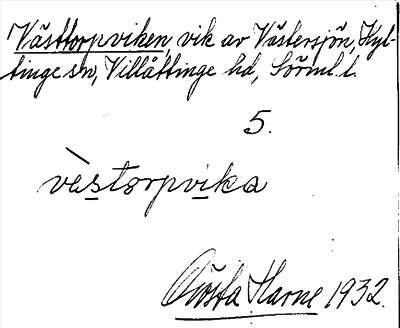 Västtorpviken, vik av Västersjön, Hyl-
tinge sn, Villåttinge hd, Sörml. l.
5.
vèstorpvika
Gösta Harne 1932.